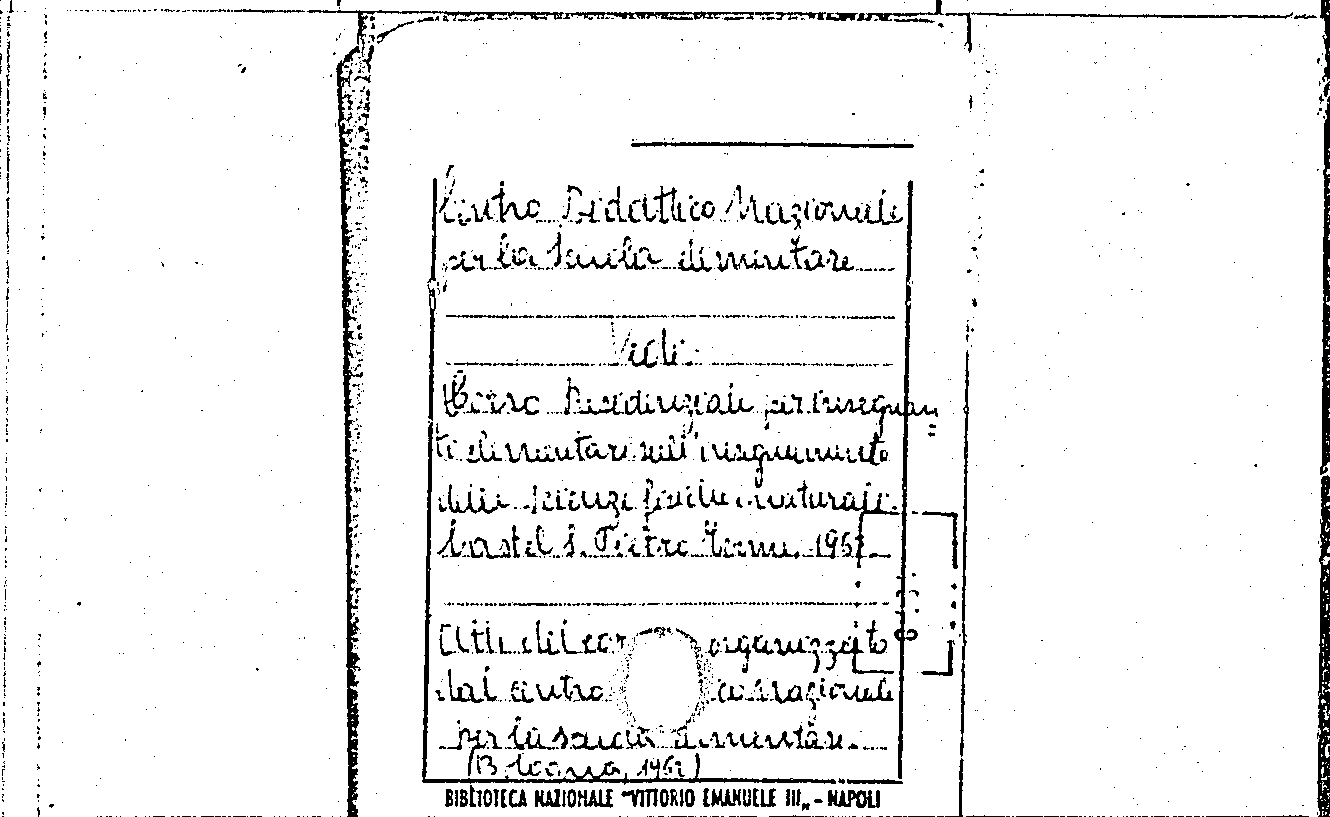 Centro Didattico Nazionale
per la Scuola elementare
Vedi:
Corso Residenziale per insegnan
ti elementari sull'insegnamento
delle scienze fisiche e naturali.
Castel S. Pietro Terme, 196
Atti del cor organizzato
dal centro nazionale
per la scuola elementare.
(Bologna, 1962)
BIBLIOTECA NAZIONALE "VITTORIO EMANUELE III„ - NAPOLI